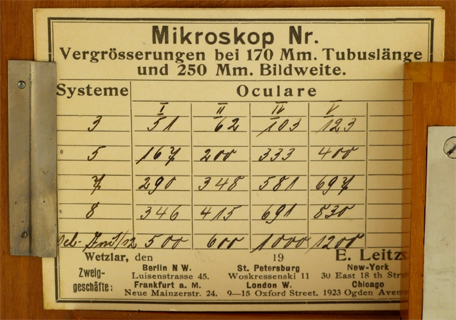 Mikroskop Nr.
Vergrösserungen bei 170 Mm. Tubuslänge
und 250 Mm. Bildweite.
Systeme Oculare
I II IV V
3 51 62 103 123
5 167 200 333 400
7 290 348 581 697
8 346 415 691 830
Oel-Im 1/12 500 600 1000 1200
Wetzlar, den 19 E. Leitz
Zweig-
geschäfte:
Berlin N W. St. Petersburg New-York
Luisenstrasse 45. Woskressenski 11 30 East 18 th Str
Frankfurt a. M. London W. Chicago
Neue Mainzerstr. 24. 9—15 Oxford Street. 1923 Ogden Aven